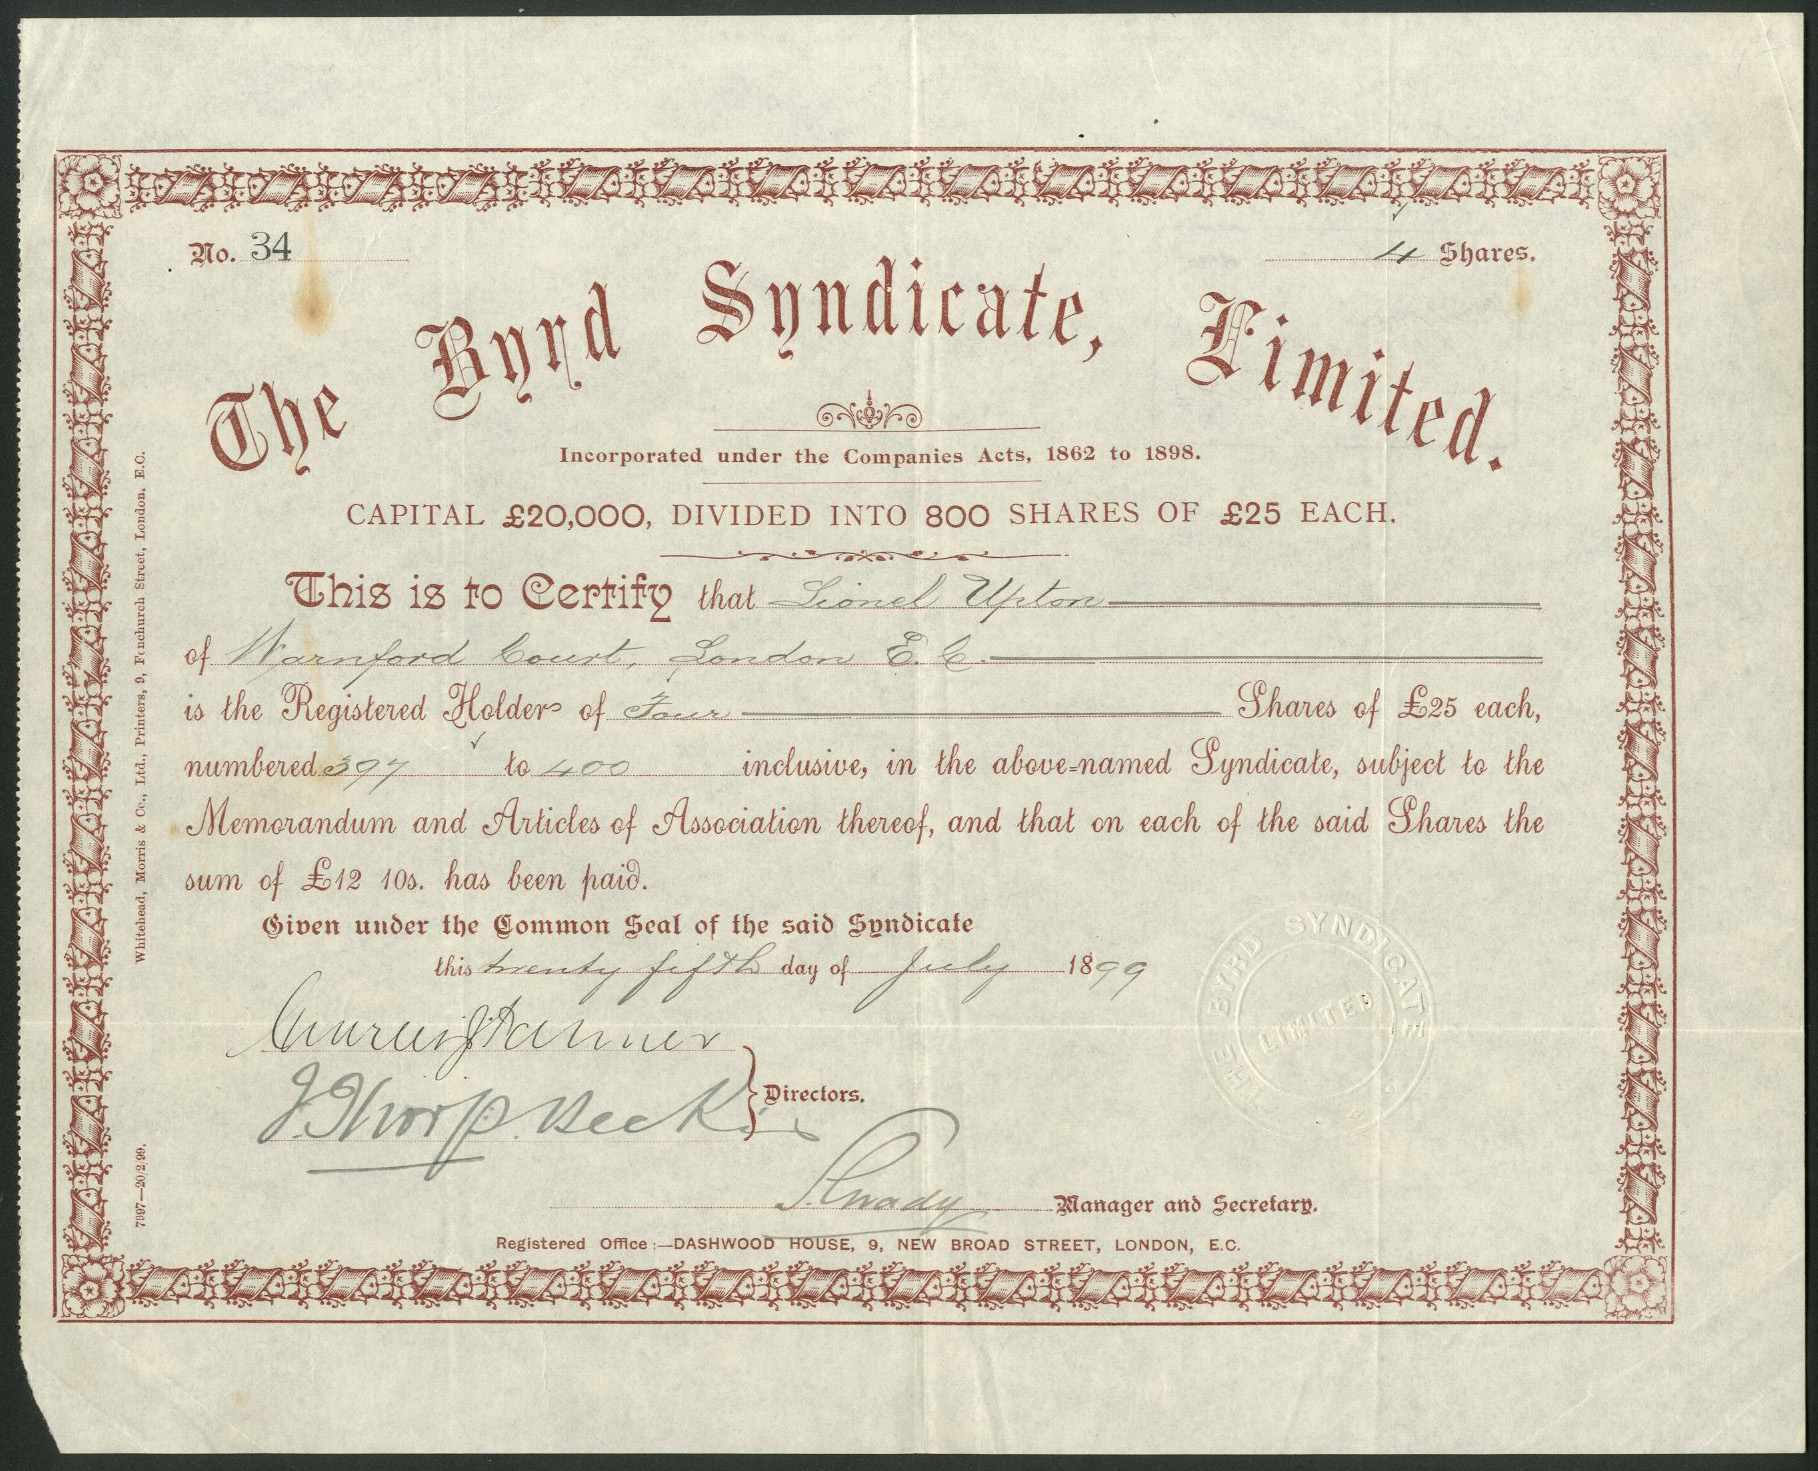 No. 34
4 Shares.
The Byrd Syndicate, Limited.
Incorporated under the Companies Acts, 1862 to 1898.
CAPITAL £20,000, DIVIDED INTO 800 SHARES OF £25 EACH.
This is to Certify that Lionel Upton
of Warnford Court, London E.C.
is the Registered Holder of Four Shares of £25 each,
numbered 397 to 400 inclusive, in the above-named Syndicate, subject to the
Memorandum and Articles of Association thereof, and that on each of the said Shares the
sum of £12 10s. has been paid.
Given under the Common Seal of the said Syndicate
this twenty fifth day of July 1899
J. Thorp
Directors.
Manager and Secretary.
Registered Office :—DASHWOOD HOUSE, 9, NEW BROAD STREET, LONDON, E.C.
THE BYRD SYNDICATE
LIMITED
Whitehead, Morris & Co., Ltd., Printers, 9, Fenchurch Street, London, E.C.
7997—20/2/99.